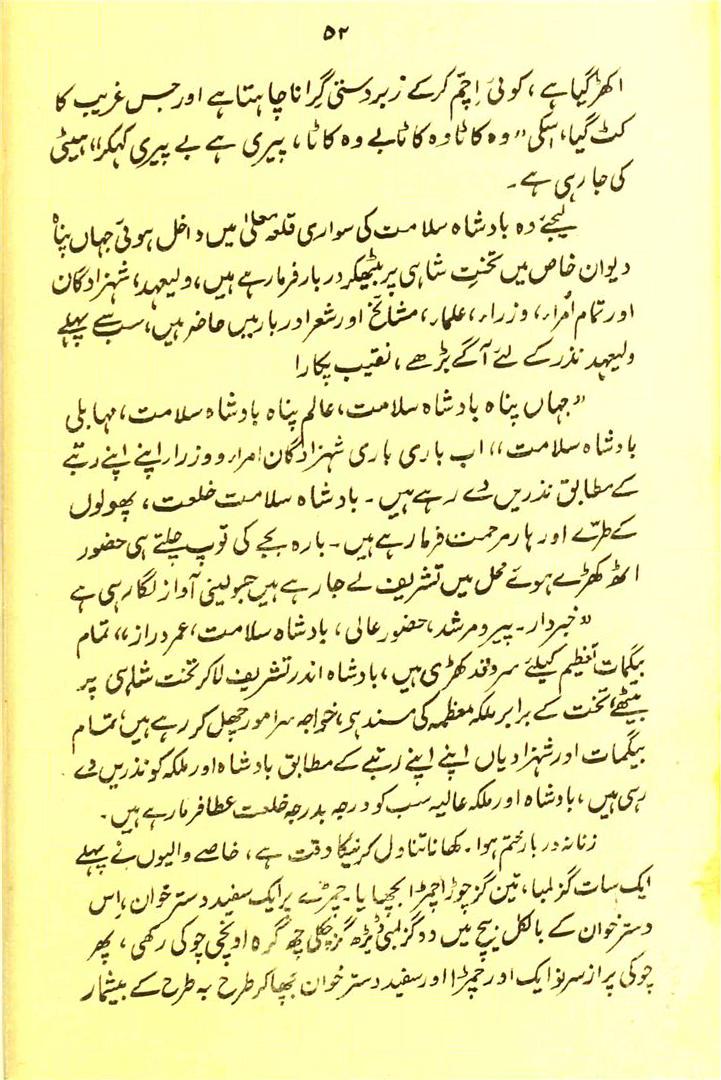 ۵۲
اکھڑ گیا ہے، کوئی اِچّم کرکے زبردستی گِرانا چاہتا ہے اور جس غریب کا
کٹ گیا، اسکی ”وہ کاٹا وہ کاٹا بے وہ کاٹا، پیری ہے بے پیری کہکر“ ہیٹی
کی جا رہی ہے۔
لیجئے وہ بادشاہ سلامت کی سواری قلعہ معلیٰ میں داخل ہوئی جہاں پناہ
دیوان خاص میں تختِ شاہی پر بیٹھکر دربار فرما رہے ہیں، ولیعہد، شہزادگان
اور تمام اُمراء، وزراء، علماء، مشائخ اور شعرا دربار میں حاضر ہیں، سب سے پہلے
ولیعہد نذر کے لئے آگے بڑھے، نقیب پکارا
”جہاں پناہ بادشاہ سلامت، عالم پناہ بادشاہ سلامت، مہابلی
بادشاہ سلامت“ اب باری باری شہزادگان امراء و وزراء اپنے اپنے رتبے
کے مطابق نذریں دے رہے ہیں۔ بادشاہ سلامت خلعت، پھولوں
کے طرّے اور ہار مرحمت فرما رہے ہیں۔ بارہ بجے کی توپ چلتے ہی حضور
اٹھ کھڑے ہوئے محل میں تشریف لے جا رہے ہیں جسولینی آواز لگا رہی ہے
”خبردار۔ پیر و مرشد، حضور عالی، بادشاہ سلامت، عمر دراز“ تمام
بیگمات تعظیم کیلئے سروقد کھڑی ہیں، بادشاہ اندر تشریف لاکر تخت شاہی پر
بیٹھے، تخت کے برابر ملکہ معظمہ کی مسند ہی، خواجہ سرا مورچھل کر رہے ہیں، تمام
بیگمات اور شہزادیاں اپنے اپنے رتبے کے مطابق بادشاہ اور ملکہ کو نذریں دے
رہی ہیں، بادشاہ اور ملکہ عالیہ سب کو درجہ بدرجہ خلعت عطا فرما رہے ہیں۔
زنانہ دربار ختم ہوا۔ کھانا تناول کرنیکا وقت ہے، خاصے والیوں نے پہلے
ایک سات گز لمبا، تین گز چوڑا چمڑا بچھایا۔ چمڑے پر ایک سفید دسترخوان، اِس
دسترخوان کے بالکل بیچ میں دو گز لمبی ڈیڑھ گز چکلی چھ گرہ اونچی چوکی رکھی، پھر
چوکی پر ازسرنو ایک اور چمڑا اور سفید دسترخوان بچھاکر طرح بہ طرح کے بیشمار